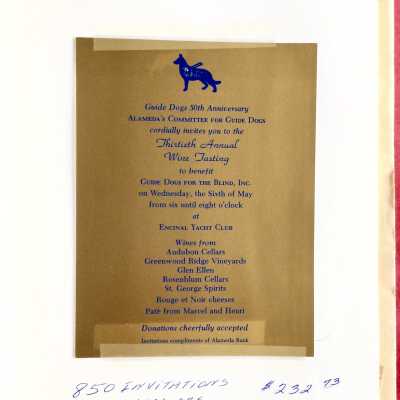 Guide Dogs 50th Anniversary
ALAMEDA'S COMMITTEE FOR GUIDE DOGS
cordially invites you to the
Thirtieth Annual
Wine Tasting
to benefit
GUIDE DOGS FOR THE BLIND, INC.
on Wednesday, the Sixth of May
from six until eight o'clock
at
ENCINAL YACHT CLUB
Wines from
Audubon Cellars
Greenwood Ridge Vineyards
Glen Ellen
Rosenblum Cellars
St. George Spirits
Rouge et Noir cheeses
Paté from Marcel and Henri
Donations cheerfully accepted
Invitations compliments of Alameda Bank
850 INVITATIONS $232 93